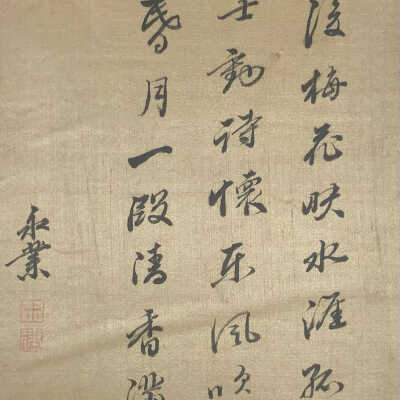 後梅花映水涯孤
士動詩懷东風吹
昏月一段清香滿
永業